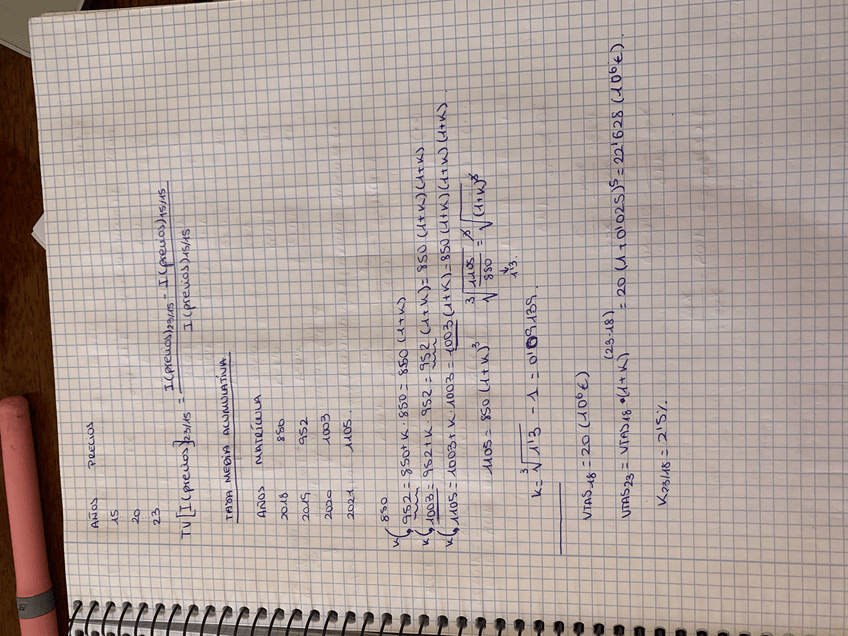 AÑOS PRECIOS
15
20
23
TV [I (precios)]23/15 = I (precios)23/15 - I (precios)15/15 / I (precios)15/15
TASA MEDIA ACUMULATIVA
AÑOS MATRÍCULA
2018 850
2019 952
2020 1003
2021 1105.
850
K 952 = 850 + K · 850 = 850 (1+K)
K 1003 = 952 + K · 952 = 952 (1+K) = 850 (1+K) (1+K)
K 1105 = 1003 + K · 1003 = 1003 (1+K) = 850 (1+K) (1+K) (1+K)
1105 = 850 (1+K)³ ³√1105/850 = ³√(1+K)³
1'3.
K = ³√1'3 - 1 = 0'09139.
VTAS18 = 20 (10⁶ €)
VTAS23 = VTAS18 · (1+K)(23-18) = 20 (1+0'025)⁵ = 22'628 (10⁶ €).
K23/18 = 2'5%